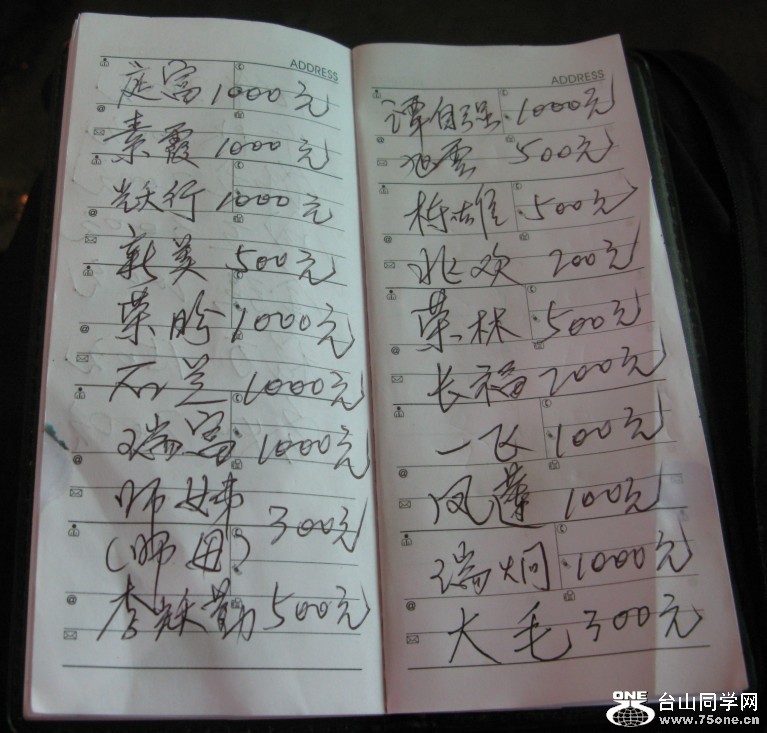 ADDRESS
定富 1000元
素霞 1000元
1000元
新美 500元
荣昤 1000元
石兰 1000元
瑞富 1000元
师娣 300元
(师母)
李耀勤 500元
ADDRESS
谭自强 1000元
旭云 500元
栋雄 500元
兆欢 200元
荣林 500元
长福 200元
一飞 100元
凤莲 100元
瑞炯 1000元
大毛 300元
ONE 台山同学网
www.75one.cn